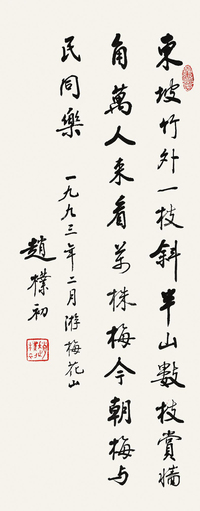 東坡竹外一枝斜半山數枝賞墻
角萬人來看萬株梅今朝梅与
民同樂
一九九三年二月游梅花山
趙樸初